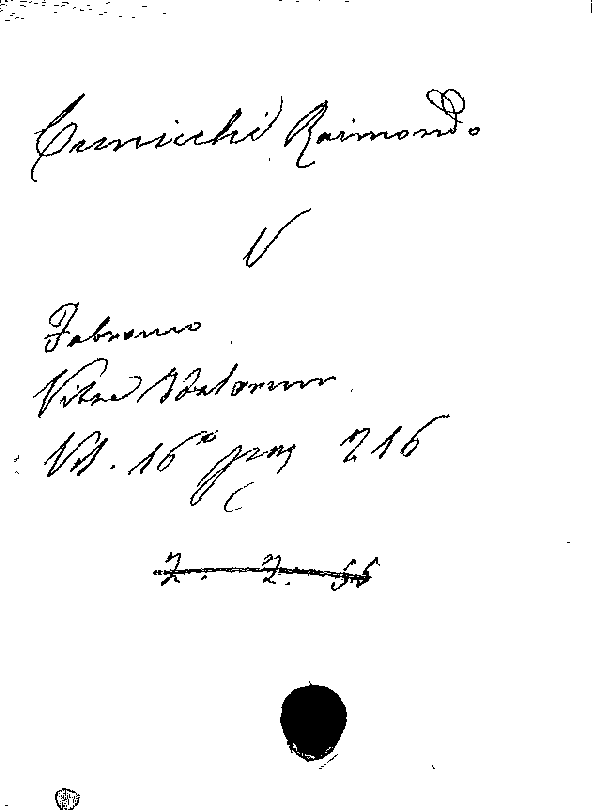 Cunicchi Raimondo
V
Fabronio
Vitae Italorum
Vol. 16° pag 216
2. 2. 55